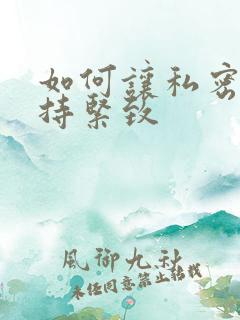 如何讓私密
持緊致
風御九秋
未经同意禁止转载